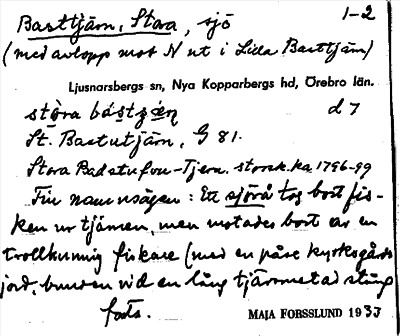 Basttjärn, Stora, sjö 1-2
(med avlopp mot N ut i Lilla Basttjärn)
Ljusnarsbergs sn, Nya Kopparbergs hd, Örebro län.
stòra bástzæn d 7
St. Bastutjärn, G 81.
Stora Badstufou-Tjern. storsk.ka 1796-99
Fin namnsägen: Ett sjörå tog bort fis-
ken ur tjärnen, men motades bort av en
trollkunnig fiskare (med en påse kyrkogårds
jord, bunden vid en lång tjärometad stång
fota.
MAJA FORSSLUND 1933